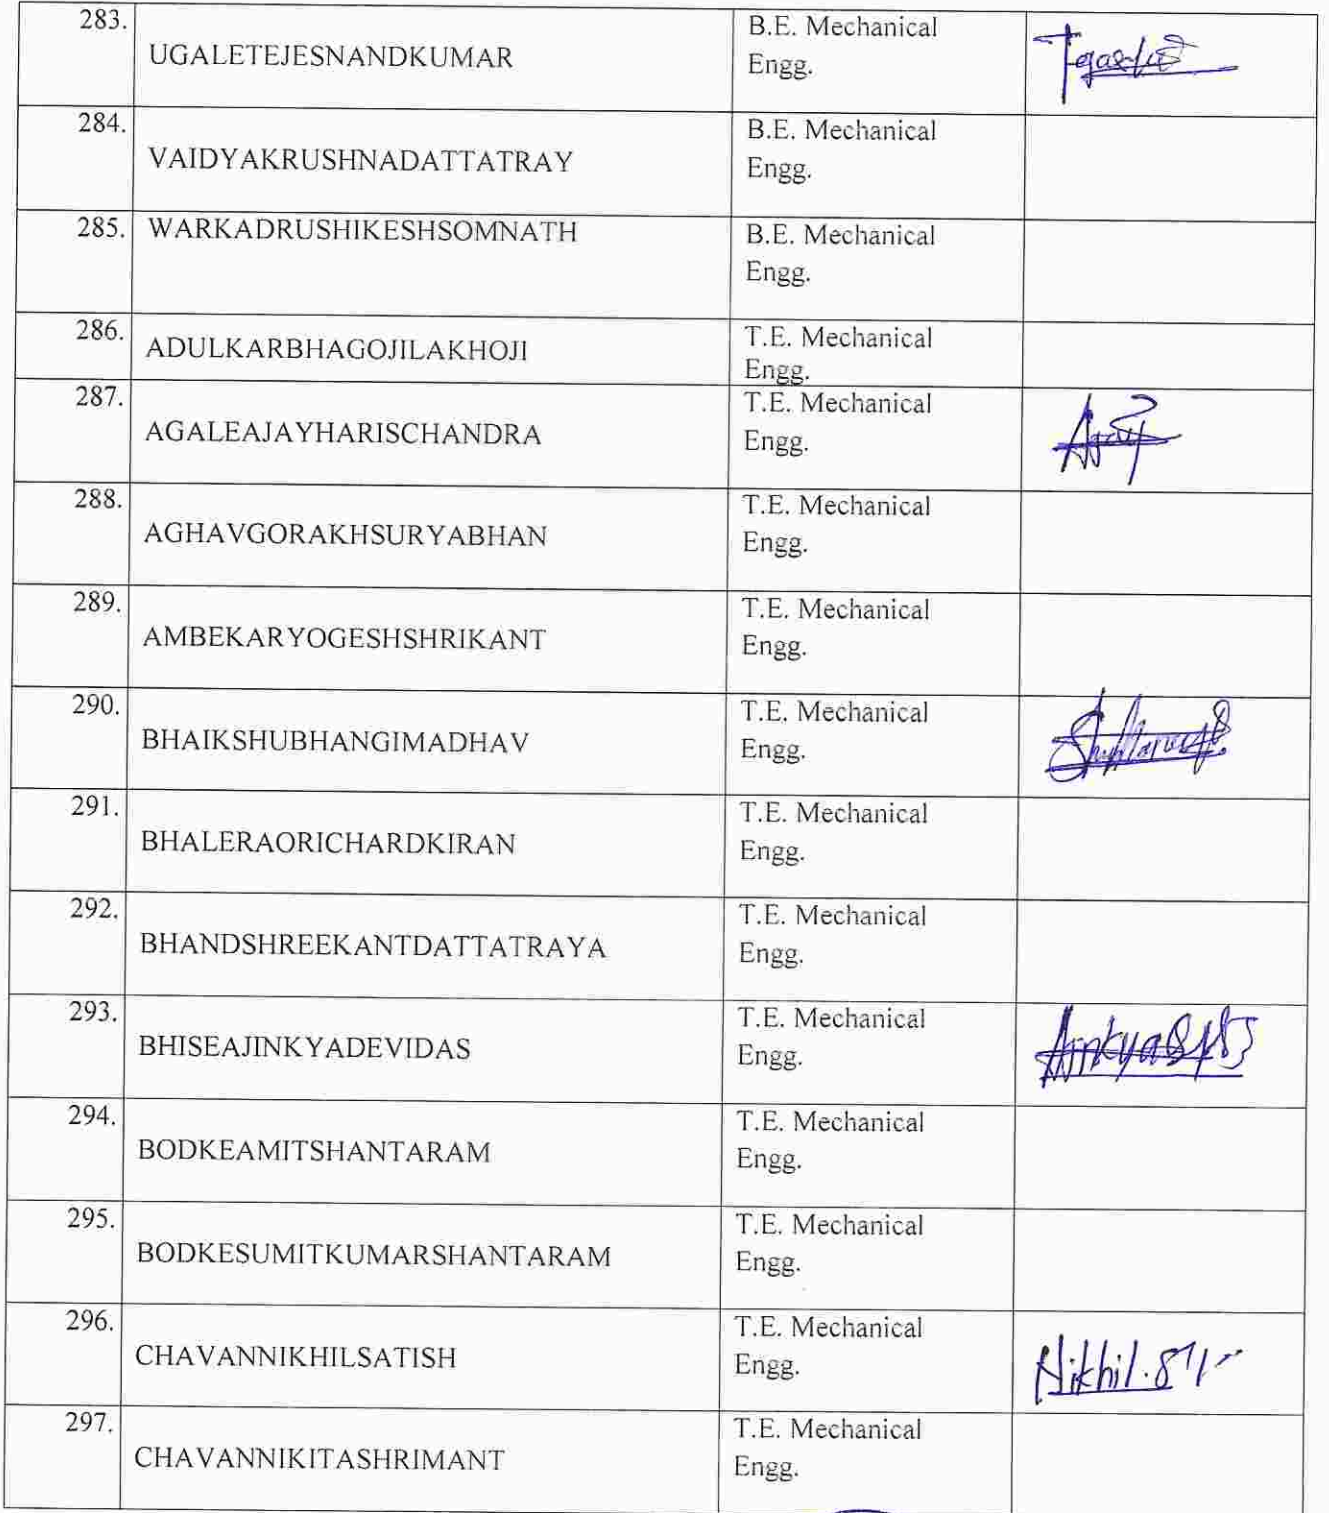 283.
UGALETEJESNANDKUMAR
B.E. Mechanical
Engg.
284.
VAIDYAKRUSHNADATTATRAY
B.E. Mechanical
Engg.
285.
WARKADRUSHIKESHSOMNATH
B.E. Mechanical
Engg.
286.
ADULKARBHAGOJILAKHOJI
T.E. Mechanical
Engg.
287.
AGALEAJAYHARISCHANDRA
T.E. Mechanical
Engg.
288.
AGHAVGORAKHSURYABHAN
T.E. Mechanical
Engg.
289.
AMBEKARYOGESHSHRIKANT
T.E. Mechanical
Engg.
290.
BHAIKSHUBHANGIMADHAV
T.E. Mechanical
Engg.
291.
BHALERAORICHARDKIRAN
T.E. Mechanical
Engg.
292.
BHANDSHREEKANTDATTATRAYA
T.E. Mechanical
Engg.
293.
BHISEAJINKYADEVIDAS
T.E. Mechanical
Engg.
294.
BODKEAMITSHANTARAM
T.E. Mechanical
Engg.
295.
BODKESUMITKUMARSHANTARAM
T.E. Mechanical
Engg.
296.
CHAVANNIKHILSATISH
T.E. Mechanical
Engg.
Nikhil
297.
CHAVANNIKITASHRIMANT
T.E. Mechanical
Engg.